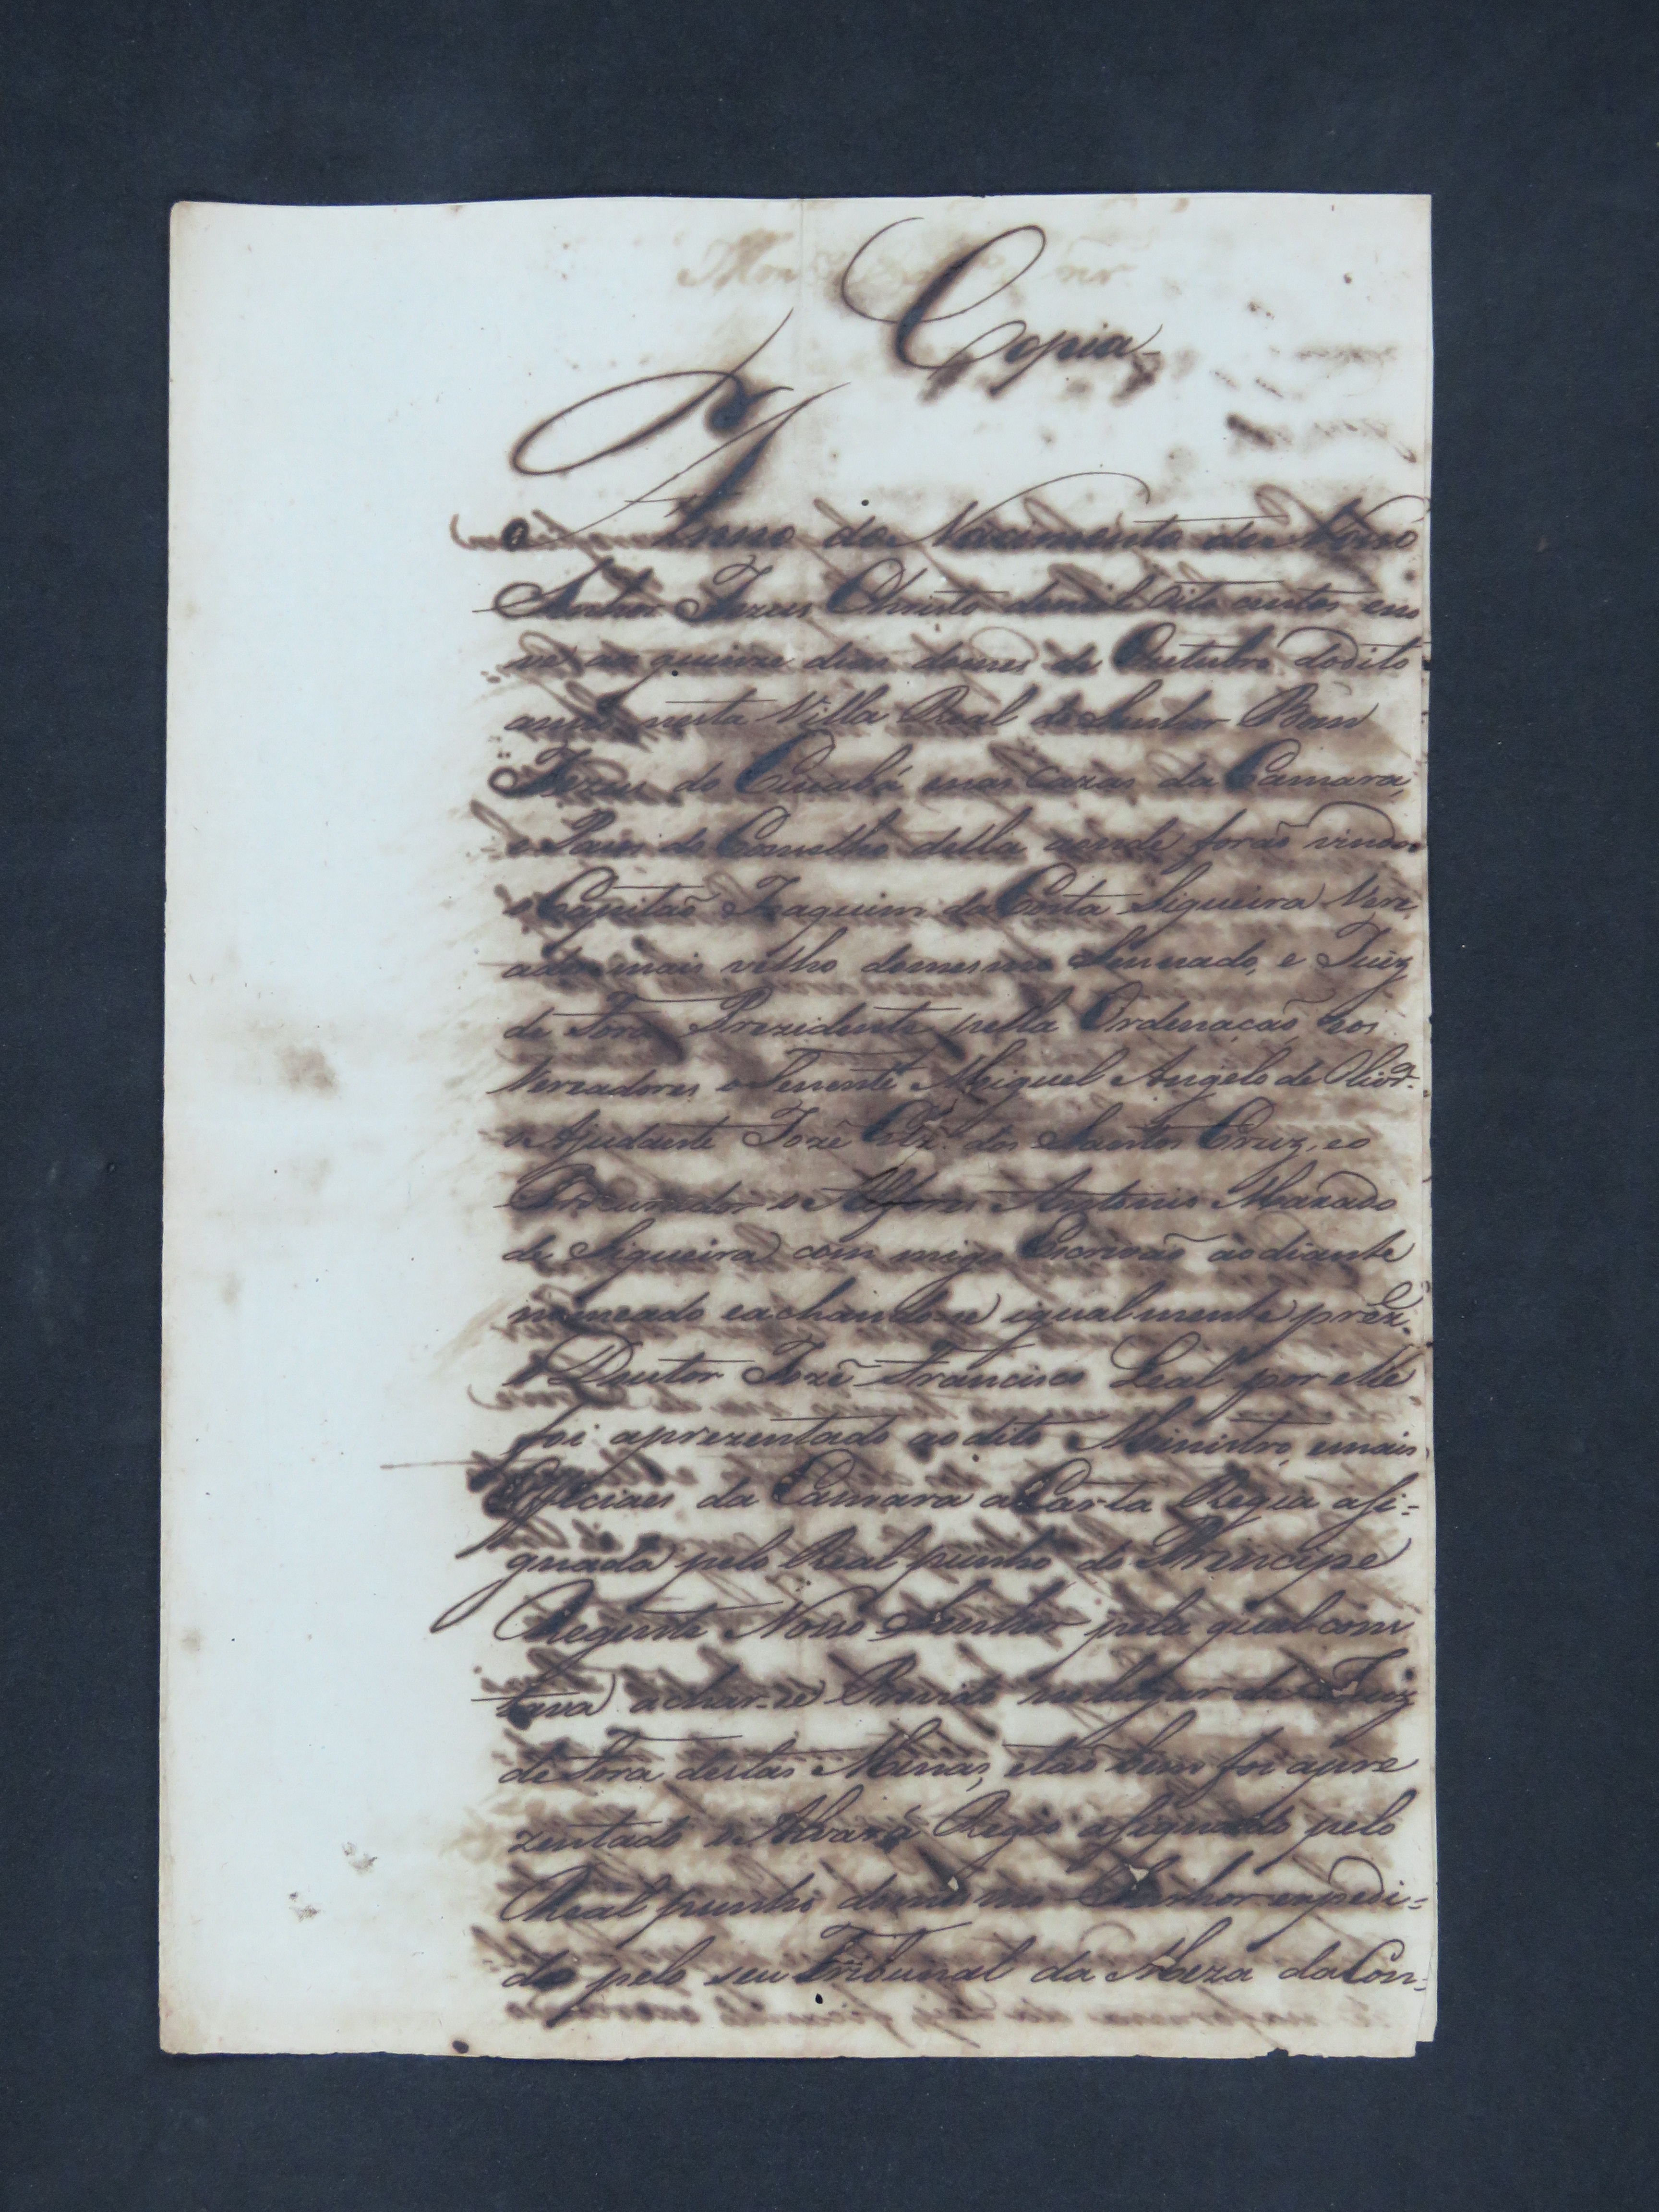 Copia
Anno do Nacimento de Nosso
Senhor Jezus Christo de mil oito centos eno
ve, aos quinze dias domes de Outubro dodito
anno nesta Villa Real do Senhor Bom
Jezus do Cuiabá enas Cazas da Camara,
e Paços do Conselho della aonde forão vindos
o Capitão Joaquim da Costa Siqueira Vere
ador mais velho domesmo Senado, e Juiz
de Fora Prezidente pella Ordenação, eos
Vereadores o Tenente Miguel Angelo de Olivr.ª
o Ajudante Jozé dos Santos Cruz, eo
Procurador o Alferes Antonio
de Siqueira com migo Escrivão aodiante
nomeado eachando-se igualmente prez.
o Doutor Jozé Francisco Leal por elle
foi aprezentado ao dito Ministro, emais
Officiaes da Camara a Carta Regia asi-
gnada pelo Real punho do Principe
Regente Nosso Senhor pela qual cons
tava achar-se Provido nolugar de Juiz
de Fora destas Minas, etão bem foi apre
zentado o Alvará Regio asignado pelo
Real punho domesmo Senhor expedi-
do pelo seu Tribunal da Meza da Con-